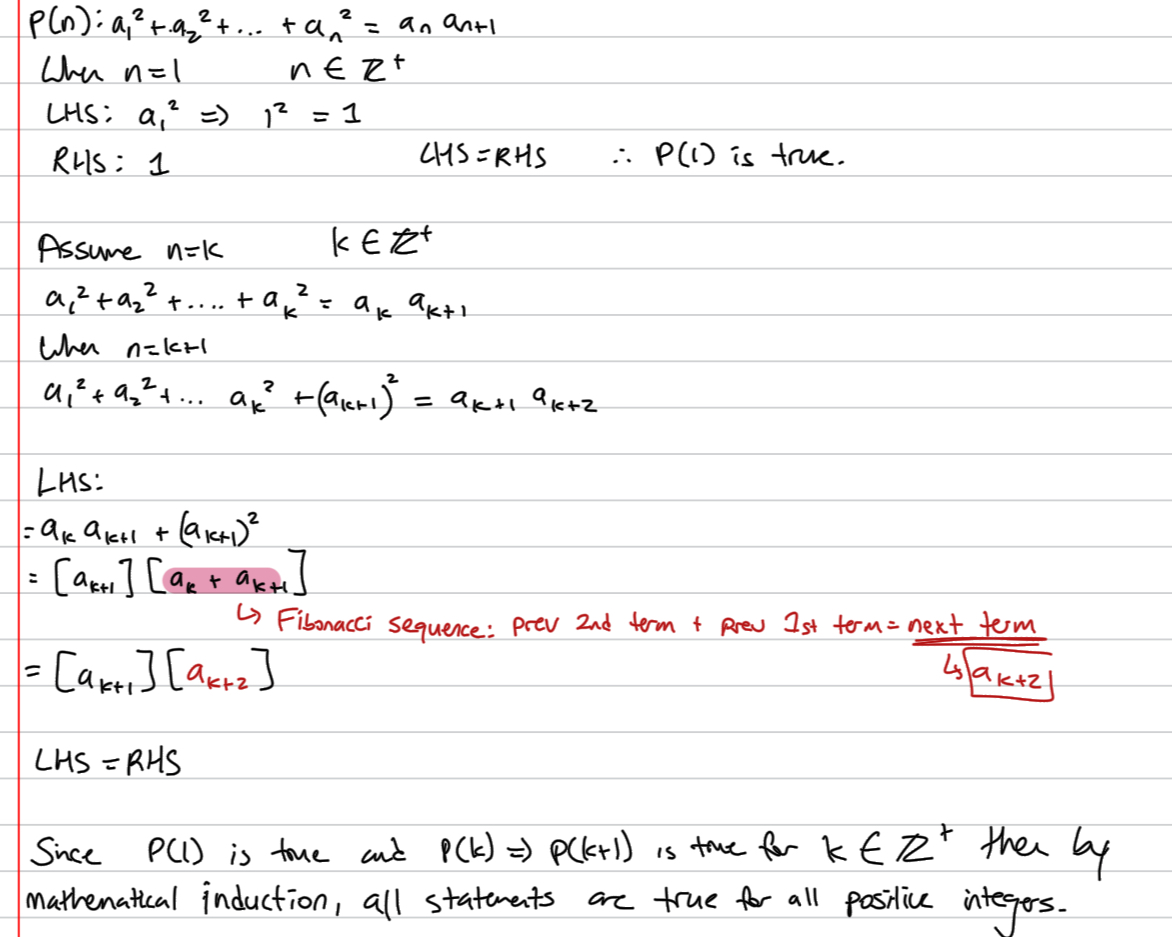 P(n): a₁² + a₂² + ... + aₙ² = aₙ aₙ₊₁
When n=1 n ∈ ℤ⁺
LHS: a₁² ⇒ 1² = 1
RHS: 1 LHS=RHS ∴ P(1) is true.
Assume n=k k ∈ ℤ⁺
a₁² + a₂² + .... + aₖ² = aₖ aₖ₊₁
When n=k+1
a₁² + a₂² + ... aₖ² + (aₖ₊₁)² = aₖ₊₁ aₖ₊₂
LHS:
= aₖ aₖ₊₁ + (aₖ₊₁)²
= [aₖ₊₁] [aₖ + aₖ₊₁]
↳ Fibonacci sequence: prev 2nd term + prev 1st term = next term
= [aₖ₊₁] [aₖ₊₂] ↳ aₖ₊₂
LHS = RHS
Since P(1) is true and P(k) ⇒ P(k+1) is true for k ∈ ℤ⁺ then by
mathematical induction, all statements are true for all positive integers.